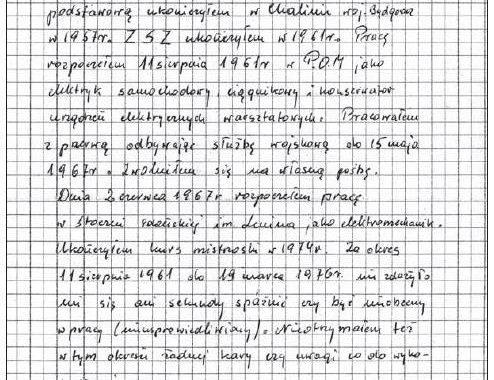 podstawową ukończyłem w Chalinie woj. Bydgoszcz
w 1957r. Z S Z ukończyłem w 1961r. Pracę
rozpocząłem 11 sierpnia 1961r w P.O.M jako
elektryk samochodowy, ciągnikowy i konserwator
urządzeń elektrycznych warsztatowych. Pracowałem
z przerwą odbywając służbę wojskową do 15 maja
1967r. Zwolniłem się na własną prośbę.
Dnia 2 czerwca 1967r rozpocząłem pracę
w Stoczni Gdańskiej im. Lenina jako elektromechanik.
Ukończyłem kurs mistrzoski w 1974r. Za okres
11 sierpnia 1961 do 19 marca 1976r. nie zdażyło
mi się ani sekundy spóźnić czy być nieobecny
w pracy (nieusprawiedliwiony). Nieotrzymałem też
w tym okresie żadnej kary czy uwagi co do wyko-